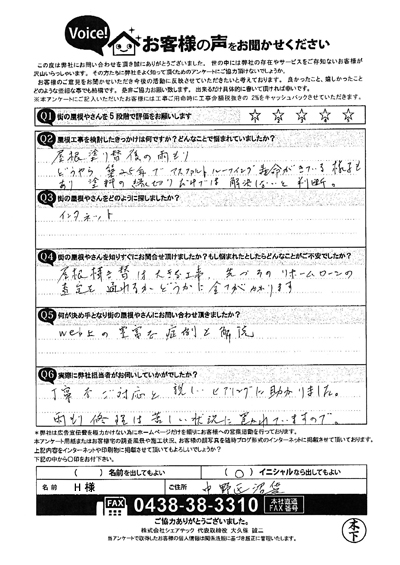 Voice!
お客様の声をお聞かせください
この度は弊社にお問い合わせを頂き誠にありがとうございました。世の中には弊社の存在やサービスをご存知ないお客様が
沢山いらっしゃいます。その方たちに弊社をよく知って頂くためのアンケートにご協力頂けないでしょうか。
お客様のご意見をお聞かせいただき今後の活動に反映させていただきたいと考えております。良かったこと、嬉しかったこと
どのような些細な事でも結構です。是非ご協力お願い致します。出来るだけ具体的に書いて頂ければ幸いです。
※本アンケートにご記入いただいたお客様には工事ご用命時に工事金額税抜きの 2%をキャッシュバックさせていただきます。
Q1 街の屋根やさんを 5 段階で評価をお願いします ☆ ☆ ☆ ☆ ☆
Q2 屋根工事を検討したきっかけは何ですか?どんなことで悩まれていましたか?
屋根塗り替後の雨もり
どうやら 築25年で アスファルトルーフィング 寿命がきている様子も
あり 塗料の縁切りだけでは 解決しないと判断。
Q3 街の屋根やさんをどのように探しましたか?
インタネット
Q4 街の屋根やさんを知りすぐにお問合せ頂けましたか?もし悩まれたとしたらどんなことがご不安でしたか?
屋根積き替は大きな工事、先づそのリホームローンの
査定を通れるかどうかに全てがかかります
Q5 何が決め手となり街の屋根やさんにお問い合わせ頂きましたか?
web上の豊富な症例と解説
Q6 実際に弊社担当者がお伺いしていかがでしたか?
丁寧なご対応と詳しいヒアリングに助かりました。
雨もり修理は苦しい状況に置かれていますので。
※弊社は広告宣伝費を極力かけない為にホームページだけを頼りにお客様への営業活動を行っております。
本アンケート用紙またはお客様宅の調査風景や施工状況、お客様の顔写真を随時ブログ形式のインターネットに掲載させて頂いております。
上記内容をインターネットや印刷物に掲載させて頂いてもよろしいでしょうか?
下記の中から〇印をお付け下さい。
( ) 名前を出してもよい (〇) イニシャルなら出してもよい
名前 H 様 ご住所 中野区沼袋
FAX 0438-38-3310 本社直通 FAX番号
ご協力ありがとうございました。
株式会社シェアテック 代表取締役 大久保 誠二
当アンケートで取得したお客様の個人情報は関係法規に基づき厳正に管理いたします。
木下